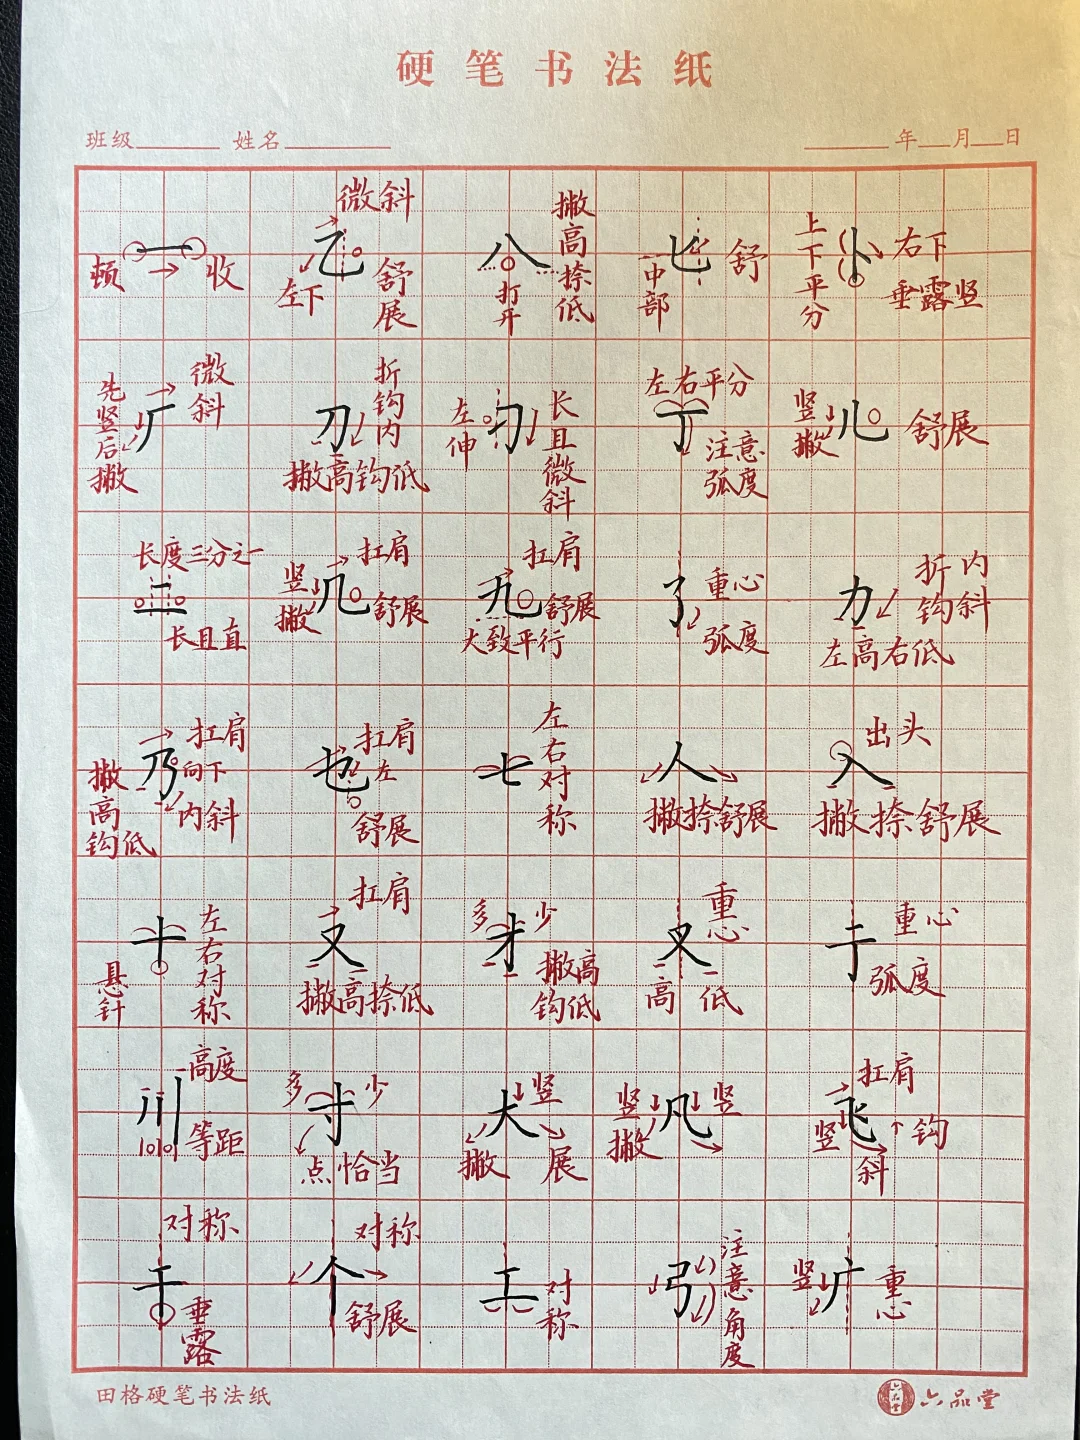 硬笔书法纸
班级 姓名 年 月 日
一 顿 收
乙 微斜 左下 舒展
八 打开 撇高捺低
匕 中部 舒
卜 上下平分 右下 垂露竖
厂 先竖后撇 微斜
刀 折钩内 撇高钩低
刁 左伸 长且微斜
丁 左右平分 注意弧度
儿 竖撇 舒展
二 长度三分之一 长且直
几 竖撇 扛肩 舒展
九 扛肩 舒展 大致平行
了 重心 弧度
力 折钩内斜 左高右低
乃 扛肩 向下 内斜 撇高钩低
也 扛肩 左 舒展
七 左右对称
人 撇捺舒展
入 出头 撇捺舒展
十 左右对称 悬针
又 扛肩 撇高捺低
才 多 少 撇高钩低
叉 重心 高 低
于 重心 弧度
川 高度 等距
寸 多 少 点恰当
大 竖 撇 展
凡 竖撇 竖
飞 扛肩 竖 钩 斜
干 对称 垂露
个 对称 舒展
工 对称
弓 注意角度
广 竖 重心
田格硬笔书法纸
六品堂
六品堂